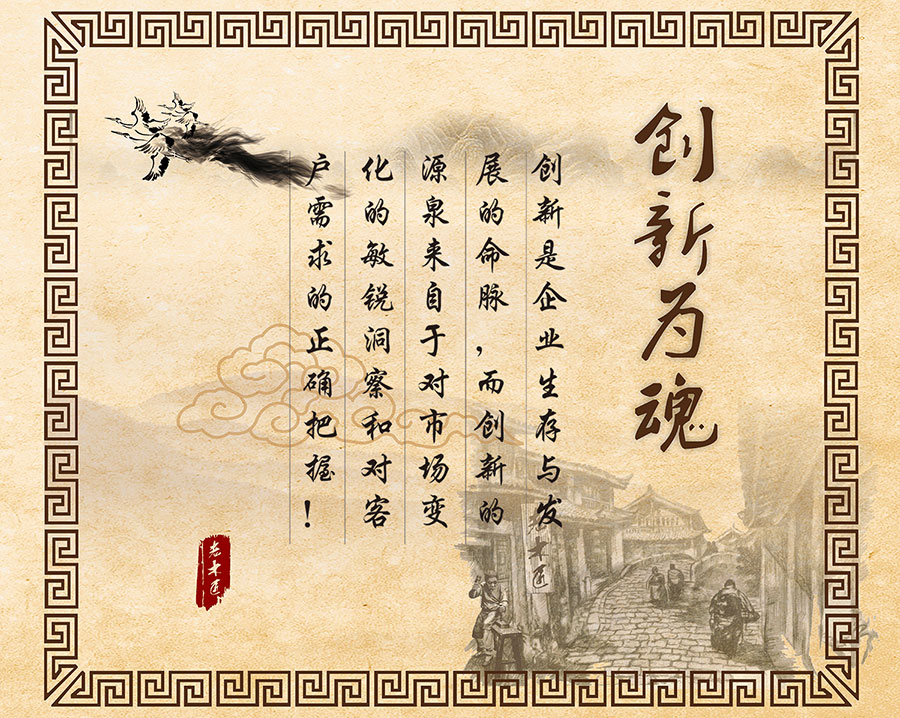 创新为魂
创新是企业生存与发
展的命脉，而创新的
源泉来自于对市场变
化的敏锐洞察和对客
户需求的正确把握！
老木匠
老木匠